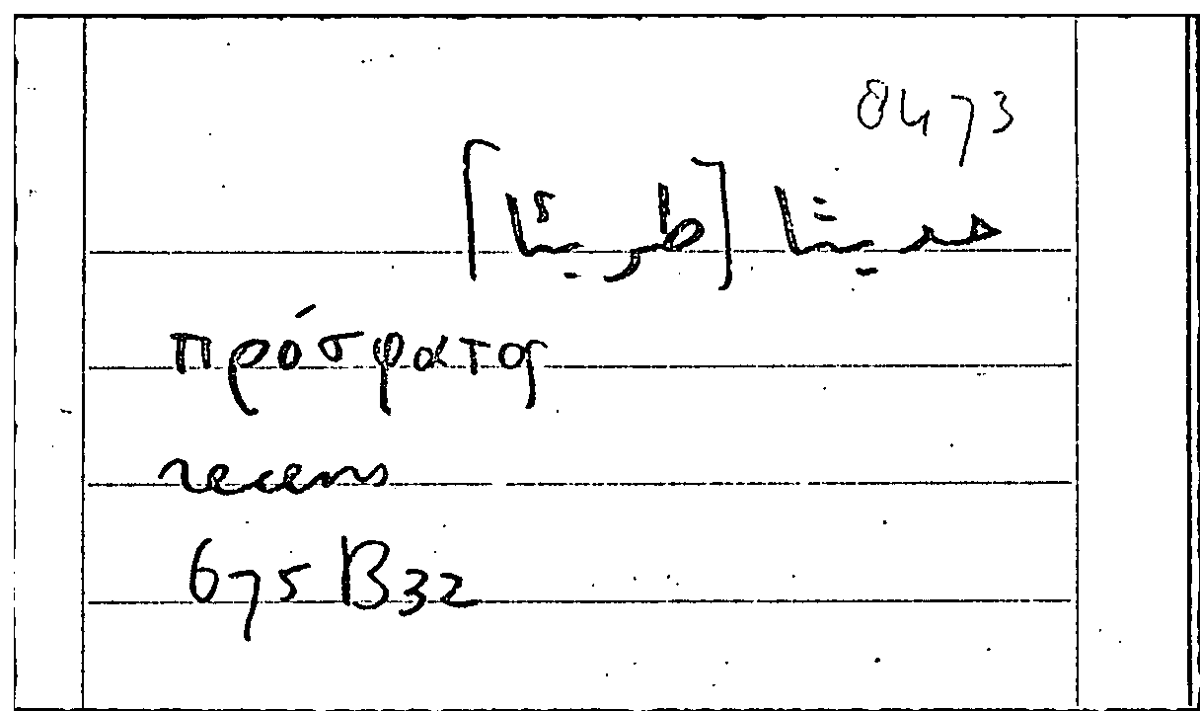 0473
حديثا [طريئا]
πρόσφατος
recens
675 B32